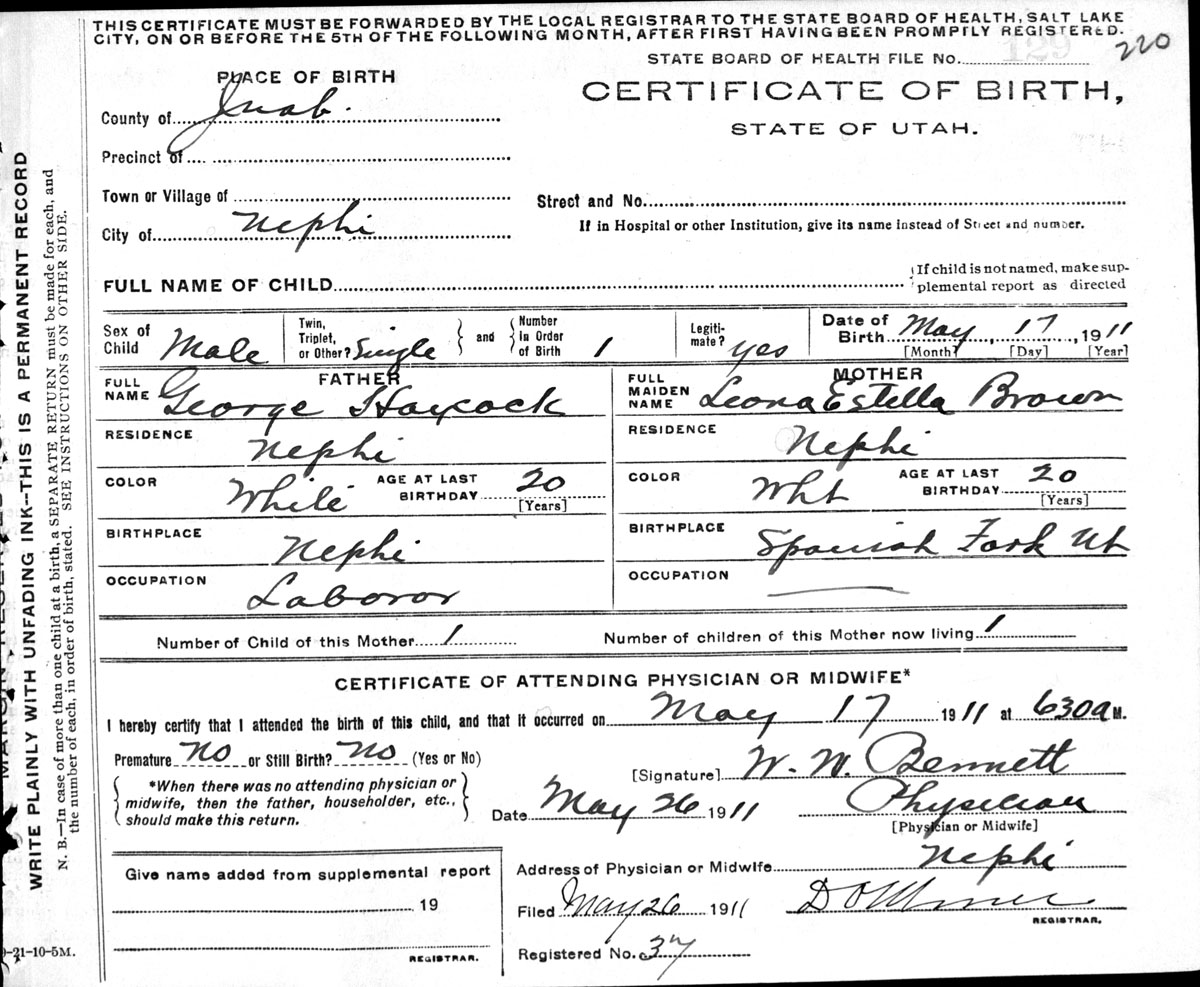 THIS CERTIFICATE MUST BE FORWARDED BY THE LOCAL REGISTRAR TO THE STATE BOARD OF HEALTH, SALT LAKE
CITY, ON OR BEFORE THE 5TH OF THE FOLLOWING MONTH, AFTER FIRST HAVING BEEN PROMPTLY REGISTERED.
129
220
STATE BOARD OF HEALTH FILE NO.
PLACE OF BIRTH
CERTIFICATE OF BIRTH,
STATE OF UTAH.
County of Juab.
Precinct of
Town or Village of
Street and No.
City of Nephi
If in Hospital or other Institution, give its name instead of Street and number.
FULL NAME OF CHILD
If child is not named, make sup-
plemental report as directed
Sex of Child Male
Twin, Triplet, or Other? Single
and
Number In Order of Birth 1
Legiti-mate? yes
Date of Birth May, 17, 1911
[Month] [Day] [Year]
FATHER
FULL NAME George Haycock
RESIDENCE Nephi
COLOR White
AGE AT LAST BIRTHDAY 20
[Years]
BIRTHPLACE Nephi
OCCUPATION Laboror
MOTHER
FULL MAIDEN NAME Leona Estella Brown
RESIDENCE Nephi
COLOR Wht
AGE AT LAST BIRTHDAY 20
[Years]
BIRTHPLACE Spanish Fork Ut
OCCUPATION
Number of Child of this Mother 1
Number of children of this Mother now living 1
CERTIFICATE OF ATTENDING PHYSICIAN OR MIDWIFE*
I hereby certify that I attended the birth of this child, and that it occurred on May 17 1911 at 630a M.
Premature No or Still Birth? No (Yes or No)
[Signature] W. W. Bennett
*When there was no attending physician or
midwife, then the father, householder, etc.,
should make this return.
Date May 26 1911
Physician
[Physician or Midwife]
Address of Physician or Midwife Nephi
Give name added from supplemental report
19
REGISTRAR.
Filed May 26 1911
REGISTRAR.
Registered No. 37
WRITE PLAINLY WITH UNFADING INK--THIS IS A PERMANENT RECORD
N. B.—In case of more than one child at a birth, a SEPARATE RETURN must be made for each, and
the number of each, in order of birth, stated. SEE INSTRUCTIONS ON OTHER SIDE.
-21-10-5M.